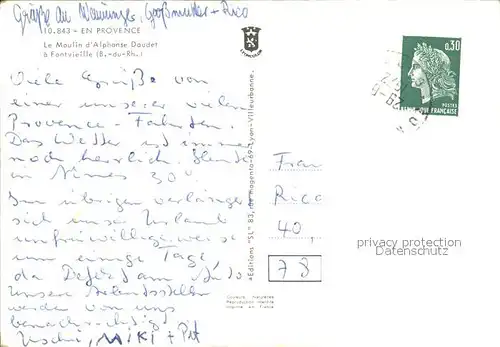 Grüße an Wauninger, Großmutter + Rico
10.843 - EN PROVENCE
Le Moulin d'Alphonse Daudet
à Fontvieille (B.-du-Rh.)
0,30
POSTES
RÉPUBLIQUE FRANÇAISE
Viele Grüße von
einer unserer vielen
Provence - Fahrten.
Das Wetter ist immer
noch herrlich. Heute
in Nimes 30°.
Im übrigen verlängert
sich unser Urlaub
unfreiwilligerweise
um einige Tage,
da Defekt am Auto.
Unsere Arbeitsstellen
werden von uns
benachrichtigt
Uschi, MIKI + Pit
Editions "SL" 83, rue Magenta - 69-Lyon-Villeurbanne.
Frau
Rico
40,
78
privacy protection
Datenschutz
Couleurs Naturelles
Reproduction interdite
Imprimé en France